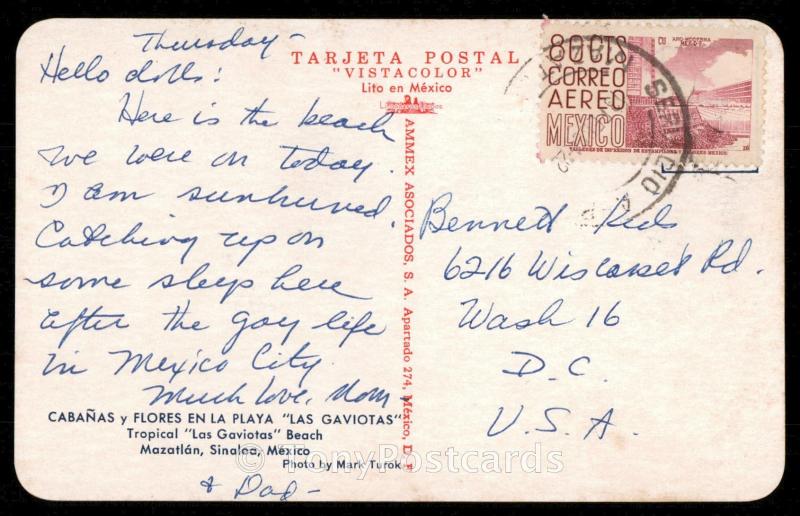 Thursday-
Hello dolls!
Here is the beach
we were on today.
I am sunburned.
Catching up on
some sleep here
after the gay life
in Mexico City.
Much love, Mom
& Dad-
TARJETA POSTAL
"VISTACOLOR"
Lito en México
AMMEX ASOCIADOS, S. A. Apartado 274, México, D. F.
CABAÑAS y FLORES EN LA PLAYA "LAS GAVIOTAS"
Tropical "Las Gaviotas" Beach
Mazatlán, Sinaloa, México
Photo by Mark Turok
80 CTS
CORREO
AEREO
MEXICO
SERVICIO
Bennett Kids
6216 Wiscasset Rd.
Wash 16
D.C.
U.S.A.
© TonyPostcards